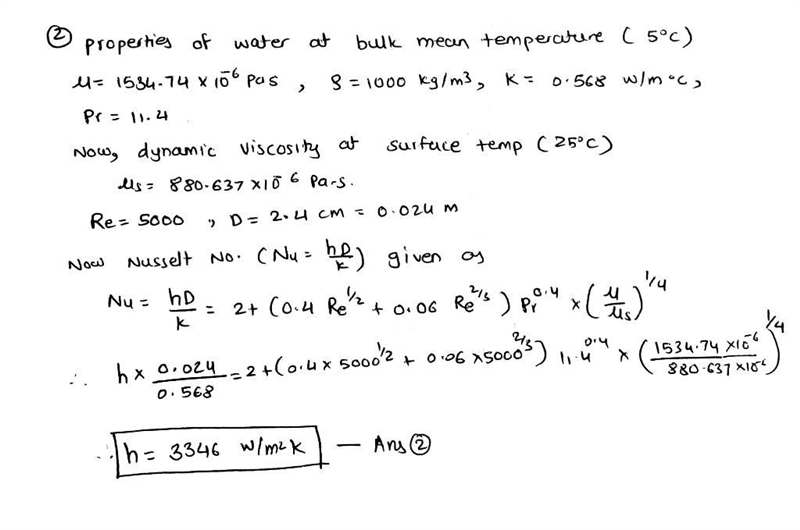 ② properties of water at bulk mean temperature ( 5°C)
μ= 1534.74 × 10⁻⁶ Pas , ρ = 1000 kg/m³, K = 0.568 W/m°C,
Pr = 11.4
Now, dynamic viscosity at surface temp (25°C)
μs = 880.637 ×10⁻⁶ Pa-s.
Re = 5000 , D = 2.4 cm = 0.024 m
Now Nusselt No. (Nu = hD/k) given as
Nu = hD/k = 2+ (0.4 Re^1/2 + 0.06 Re^2/3) Pr^0.4 × (μ/μs)^1/4
∴ h × 0.024/0.568 = 2+(0.4×5000^1/2 + 0.06 ×5000^2/3) 11.4^0.4 × (1534.74 ×10⁻⁶/880.637 ×10⁻⁶)^1/4
∴ h = 3346 W/m²K — Ans ②